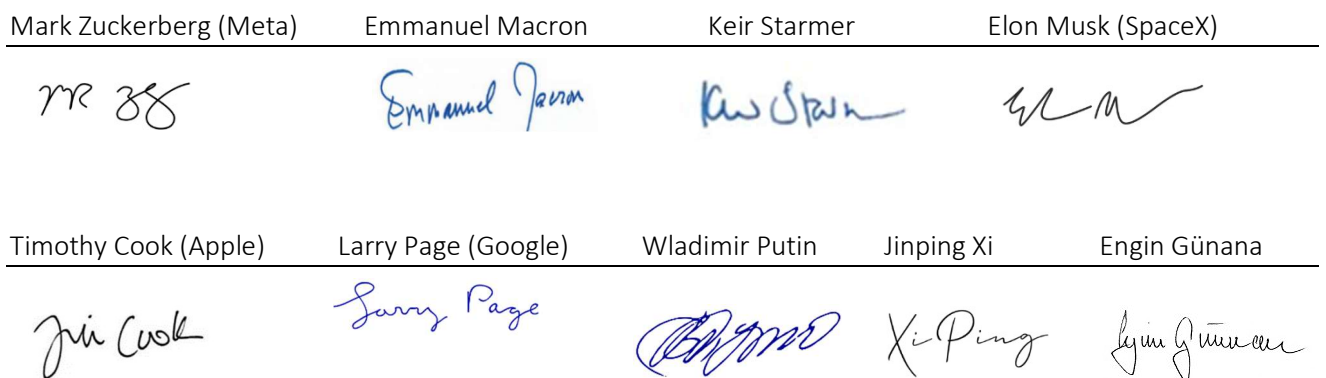 Mark Zuckerberg (Meta) Emmanuel Macron Keir Starmer Elon Musk (SpaceX)
Emmanuel Macron
Timothy Cook (Apple) Larry Page (Google) Wladimir Putin Jinping Xi Engin Günana
Tim Cook Larry Page Xi Ping